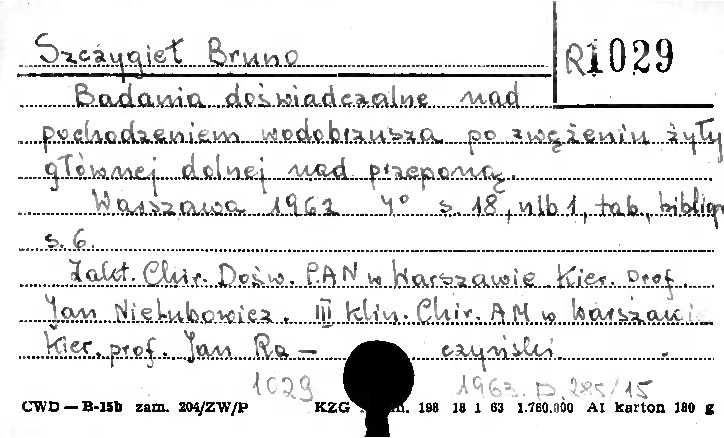 Szczygieł Bruno
R1029
Badania doświadczalne nad
pochodzeniem wodobrzusza po zwężeniu żyły
głównej dolnej nad przeponą.
Warszawa 1962 4° s. 18, nlb 1, tab., bibliogr
s. 6.
Zakł. Chir. Dośw. PAN w Warszawie Kier. prof.
Jan Nielubowicz. III Klin. Chir. AM w Warszawie
Kier. prof. Jan Ra- czyński.
1029 1963. D. 285/15
CWD — B-15b zam. 204/ZW/P KZG m. 198 18 1 63 1.760.000 AI karton 180 g